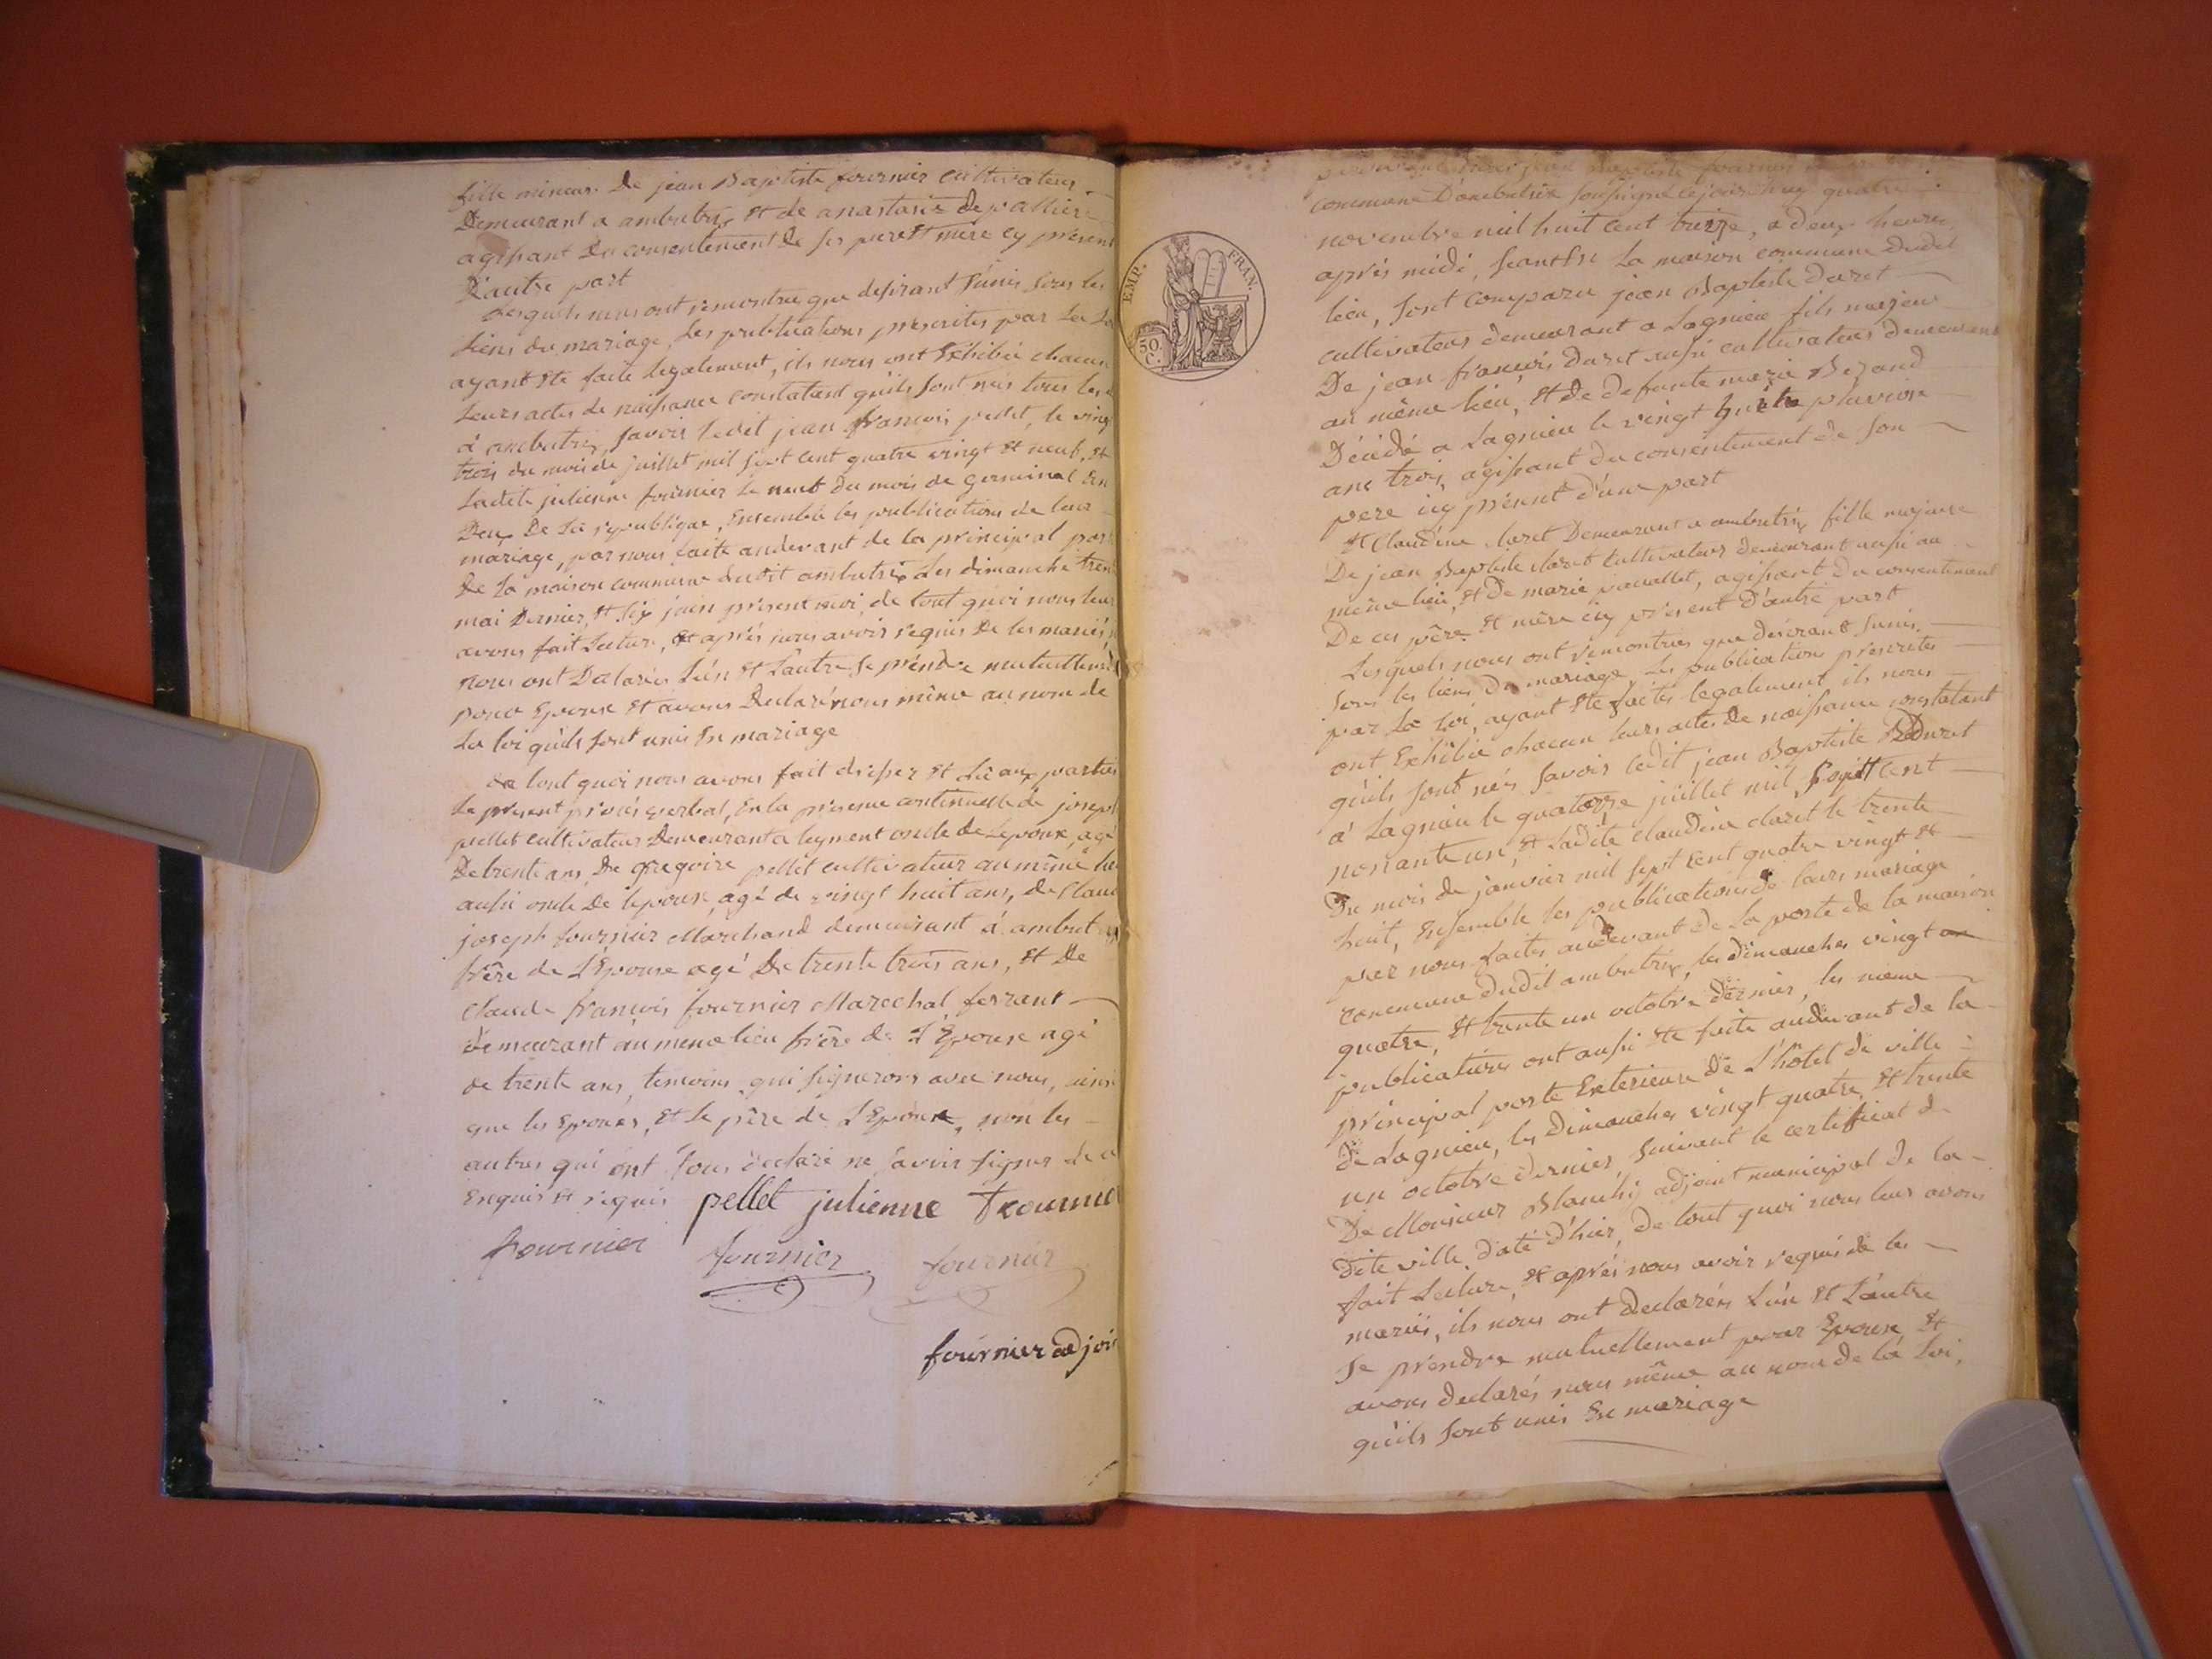 fille mineur De jean Baptiste fournier cultivateur
Demeurant a ambutrix Et de anastasie
agissant du consentement de ses pere Et mère cy présent
D'autre part
Lesquels nous ont remontres que desirant s'unir sous les
liens du mariage, Les publications prescrites par La Loi
ayant Ete faite legalement, ils nous ont Exhibée chacun
Leurs actes de naissance constatant quils sont nés tous les
à ambutrix, savoir ledit jean françois pellet, le vingt
trois du mois de juillet mil sept cent quatre vingt Et neuf, Et
Ladite julienne fournier Le neuf du mois de germinal En
Deux De La republique, Ensemble les publications de leur
mariage, par nous faite audevant de la principal porte
De La maison commune dudit ambutrix Les dimanche trente
mai Dernier, Et six juin présent moi, de tout quoi nous leur
avons fait Lecture, Et aprés nous avoir requis De les mariés,
nous ont Declarés L'un Et L'autre se prendre mutuellement
pour Epoux Et avons Declaré nous même au nom de
La loi quils sont unis En mariage
de tout quoi nous avons fait dresser Et Lû aux parties
Le present procés verbal, En la presence continuelle de joseph
pellet cultivateur Demeurant a leyment oncle de Lepoux, agé
De trente ans, De gregoire pellet cultivateur au même lieu
aussi oncle De lepoux, agé de vingt huit ans, de Claude
joseph fournier Marchand demeurant à ambutrix
frère de L'Epouse agé De trente trois ans, Et De
Claude françois fournier Marechal ferrant
demeurant au meme lieu frère de L'Epouse agé
de trente ans, temoins qui signerons avec nous, ainsi
que les Epoux, Et le père de L'Epouse, non les
autres qui ont tous declaré ne savoir signer de ce
Enquis Et requis pellet julienne fournier
fournier fournier fournier
fournier adjoint
EMP. FRAN.
50 C.
jean Baptiste fournier
commune Dambutrix soussigné cejourdhuy quatre
novembre mil huit cent treize, a deux heures
aprés midi, séant En La maison commune dudit
lieu, sont comparu jean Baptiste duret
cultivateur demeurant a Lagnieu fils majeur
De jean françois duret aussi cultivateur demeurant
au même lieu, Et de defunte marie
Décédé a Lagnieu le vingt huit pluviose
ans trois, agissant du consentement de son
pere icy présent d'une part
Et Claudine claret Demeurant a ambutrix fille majeure
De jean Baptiste claret cultivateur demeurant aussi au
même lieu, Et De marie, agissant du consentement
De ces père Et mère icy present d'autre part
Lesquels nous ont remontrés que desirant s'unir
sous les liens Du mariage, Les publication prescrites
par La Loi, ayant Ete faites legalement ils nous
ont Exhibée chacun leurs actes De naissance constatant
quils sont nés savoir ledit jean Baptiste Duret
à Lagnieu le quatorze juillet mil sept cent
nonante un, Et Ladite claudine claret le trente
Du mois de janvier mil sept cent quatre vingt Et
huit, Ensemble les publications de leurs mariage
par nous faites audevant de La porte de la maison
commune dudit ambutrix, les dimanches vingt
quatre, Et trente un octobre dernier, les meme
publications ont aussi Ete faite audevant de la
principal porte Exterieure de L'hôtel de ville
de Lagnieu, les dimanches vingt quatre, Et trente
un octobre dernier, suivant le certificat de
De Monsieur adjoint municipal de la
dite ville daté d'hier, De tout quoi nous leur avons
fait Lecture, Et aprés nous avoir requis de les
mariés, ils nous ont declarés L'un Et L'autre
se prendre mutuellement pour Epoux, Et
avons declarés nous même au nom de la Loi,
quils sont unis En mariage